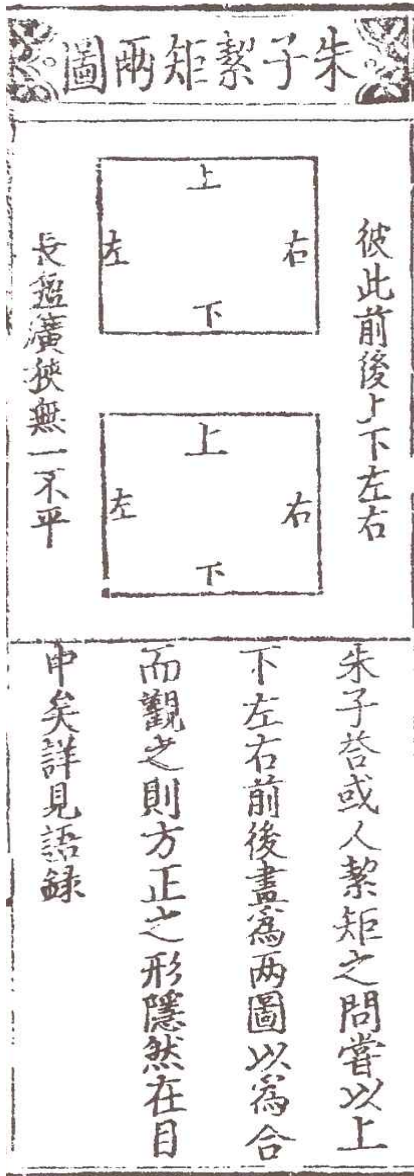 朱子絜矩兩圖
彼此前後上下左右
上
右
左
下
上
右
左
下
長短廣狹無一不平
朱子荅或人絜矩之問嘗以上
下左右前後畫為两圖以為合
而觀之則方正之形隱然在目
中矣詳見語録